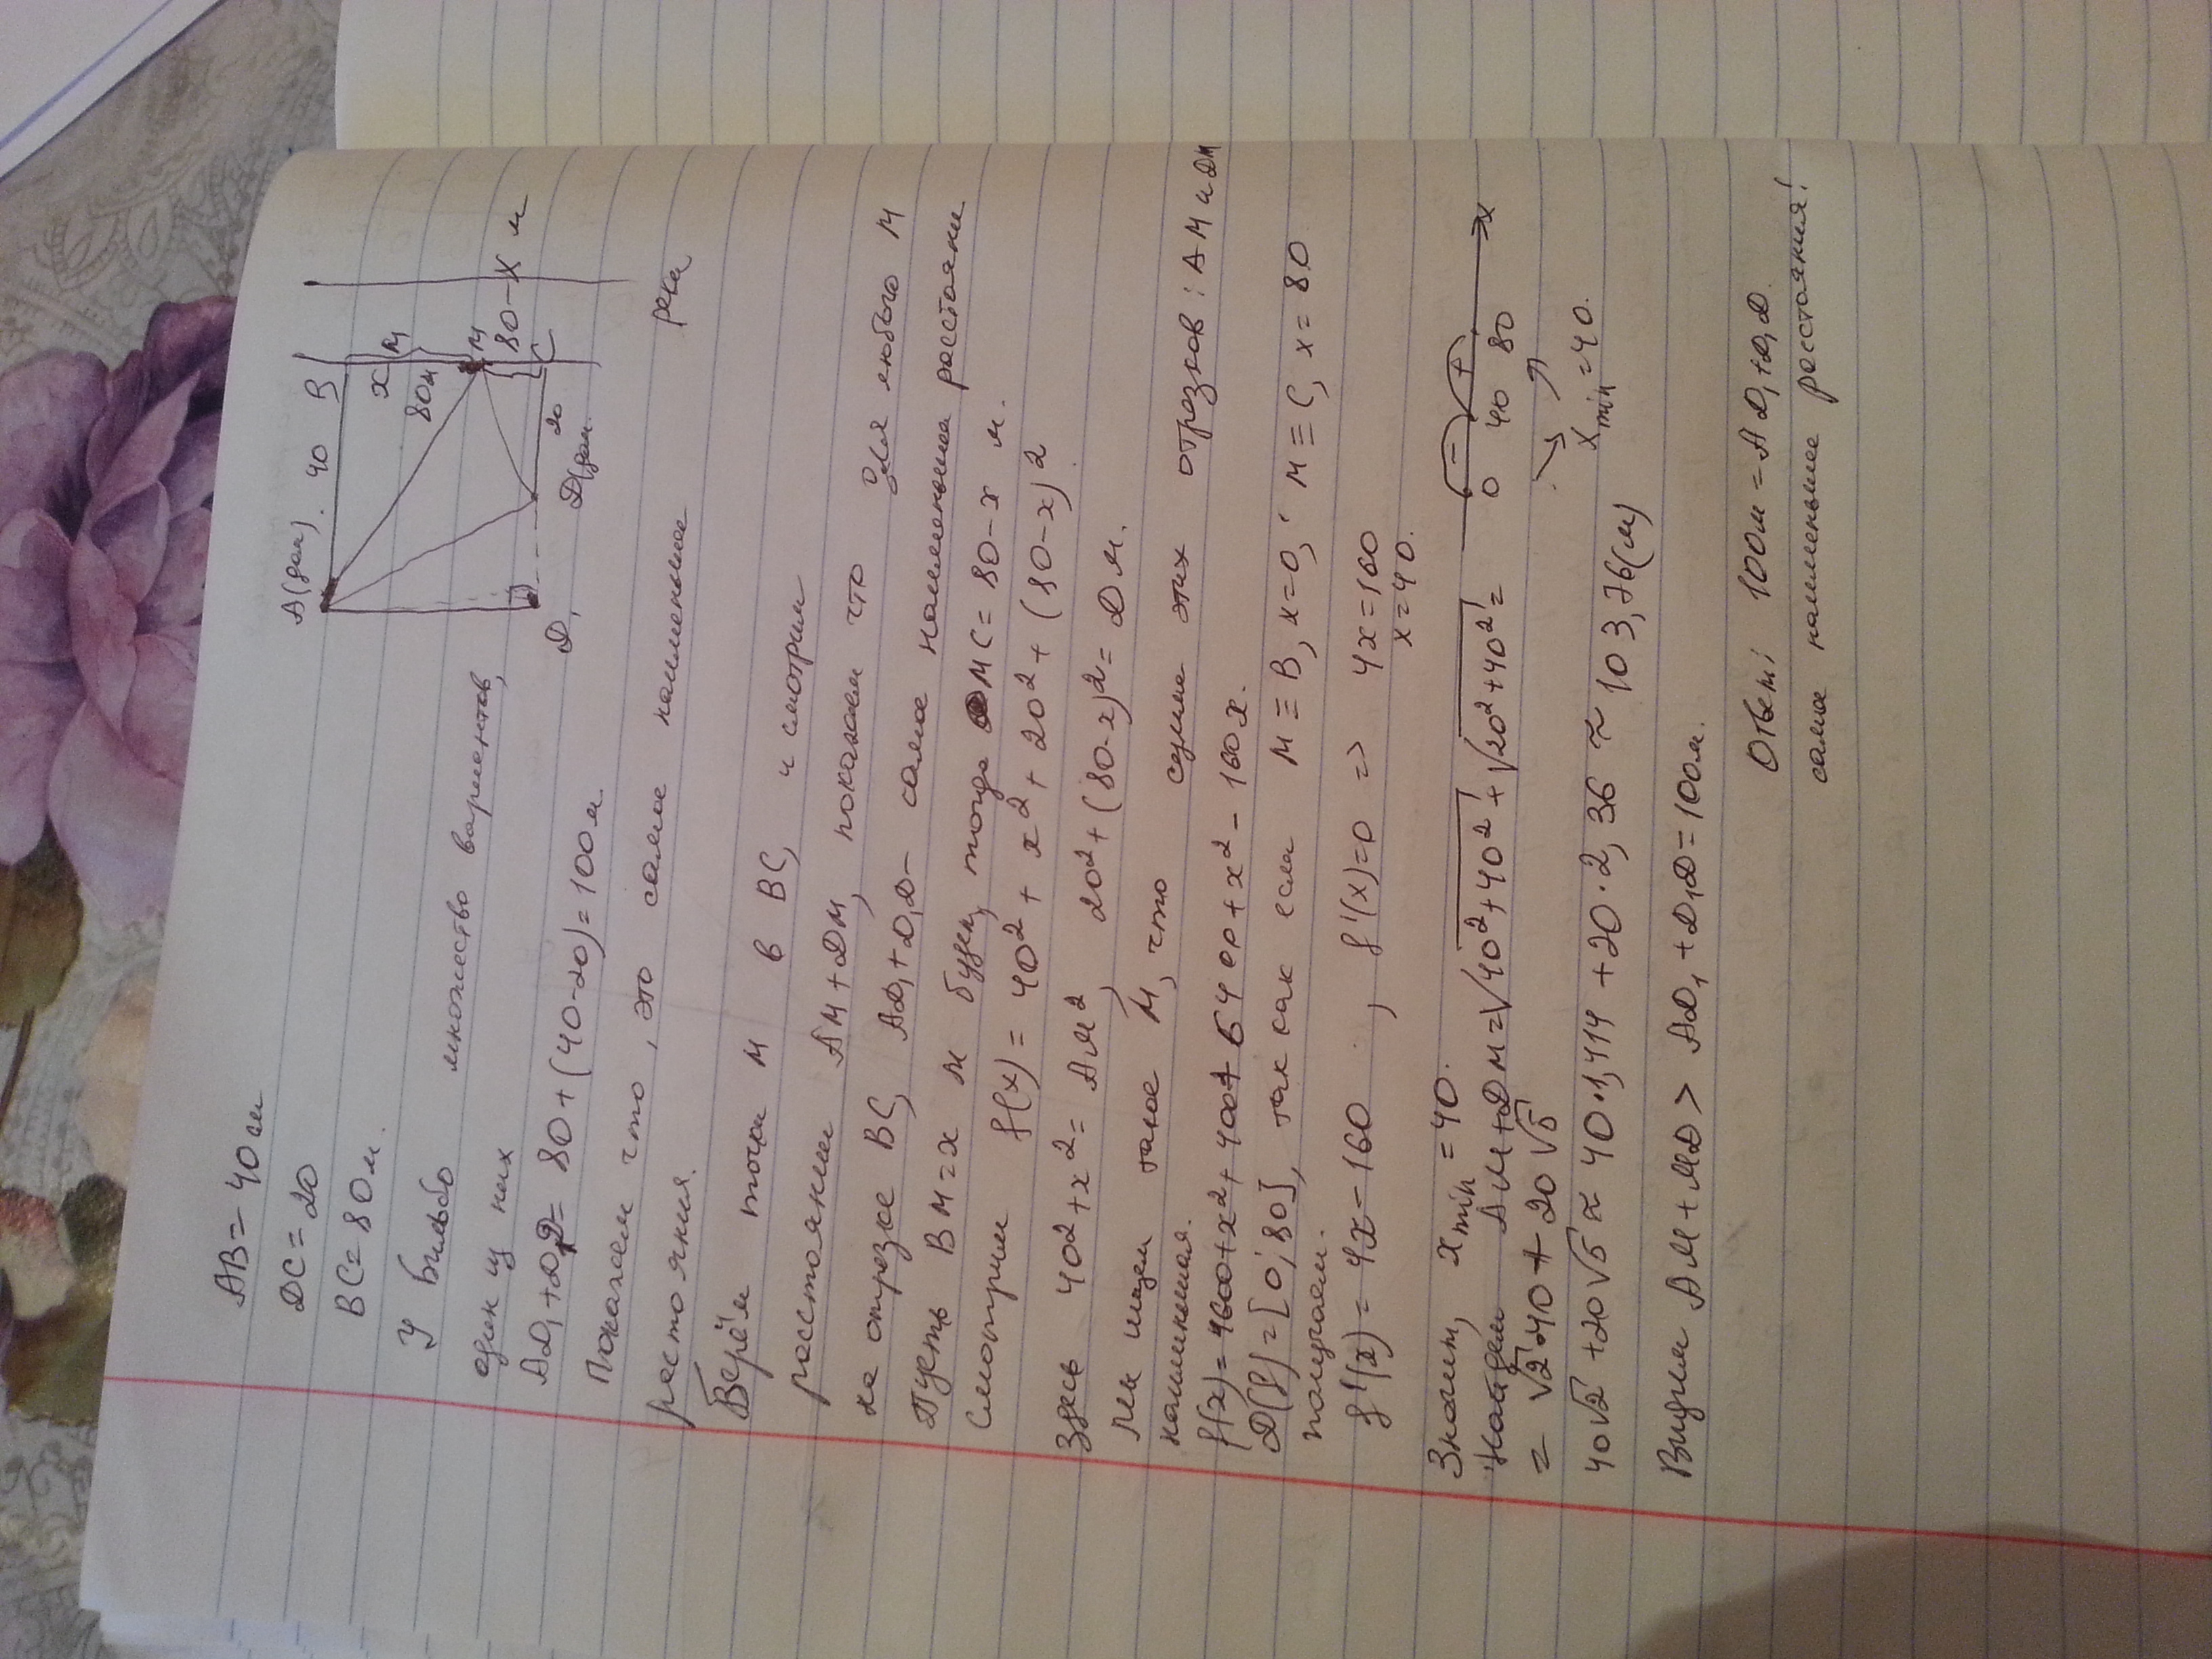 AB = 40 м
DC = 20
BC = 80 м.
A(дом). 40 B
x М
80 м
М
80-x м
C
20
D(дом.
D₁
река
У Бильбо множество вариантов,
один из них
AD₁+D₁D= 80+(40-20)=100 м.
Покажем что, это самое наименьшее
расстояния.
Берём точки М в BC, и смотрим
расстоянии АМ+DM, покажем что для любого М
на отрезке BC, AD₁+D₁D- самое наименьшиа расстояние
Пусть BM=x м будет, тогда MC=80-x м.
Смотрим f(x)=40²+x²+20²+(80-x)²
Здесь 40²+x²=AM², 20²+(80-x)²=DM.
Мы ищем такое М, что сумма этих отрезков: AM и DM
наименшая.
f(x)=1600+x²+400+6400+x²-160x.
D(f)=[0;80], так как если M≡B, x=0, M≡C, x=80
получаем.
f'(x)=4x-160, f'(x)=0 => 4x=160
x=40.
- +
0 40 80 x
Значит, x min =40. x min =40.
Найдем AM+DM=√40²+40²+√20²+40²=
=√2·40+20√5
40√2+20√5≈40·1,414+20·2,36≈103,76(м)
Видим AM+MD> AD₁+D₁D=100м.
Ответ: 100м=AD₁+D₁D.
самое наименьшее расстояния!